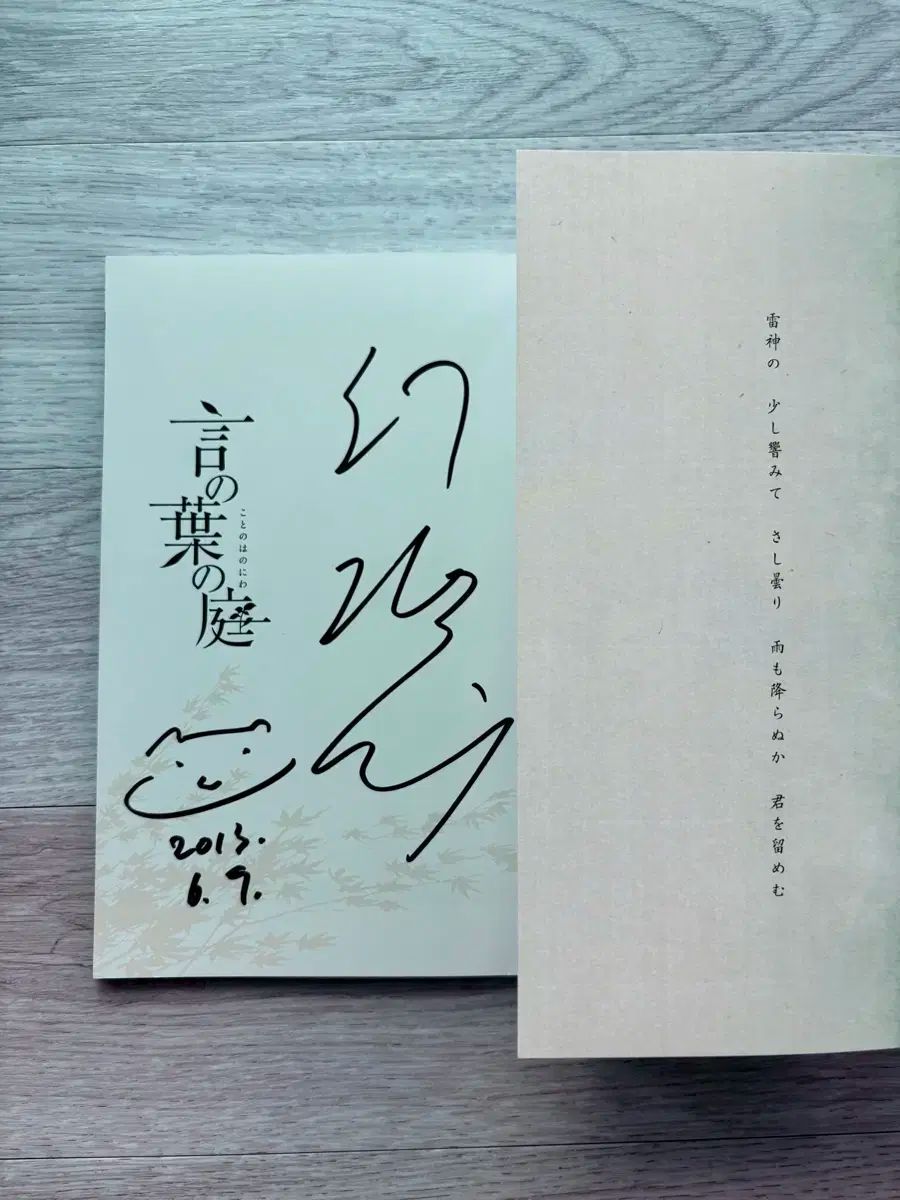 言の葉の庭
ことのはのにわ
2013.
6.9.
雷神の　少し響みて　さし曇り　雨も降らぬか　君を留めむ